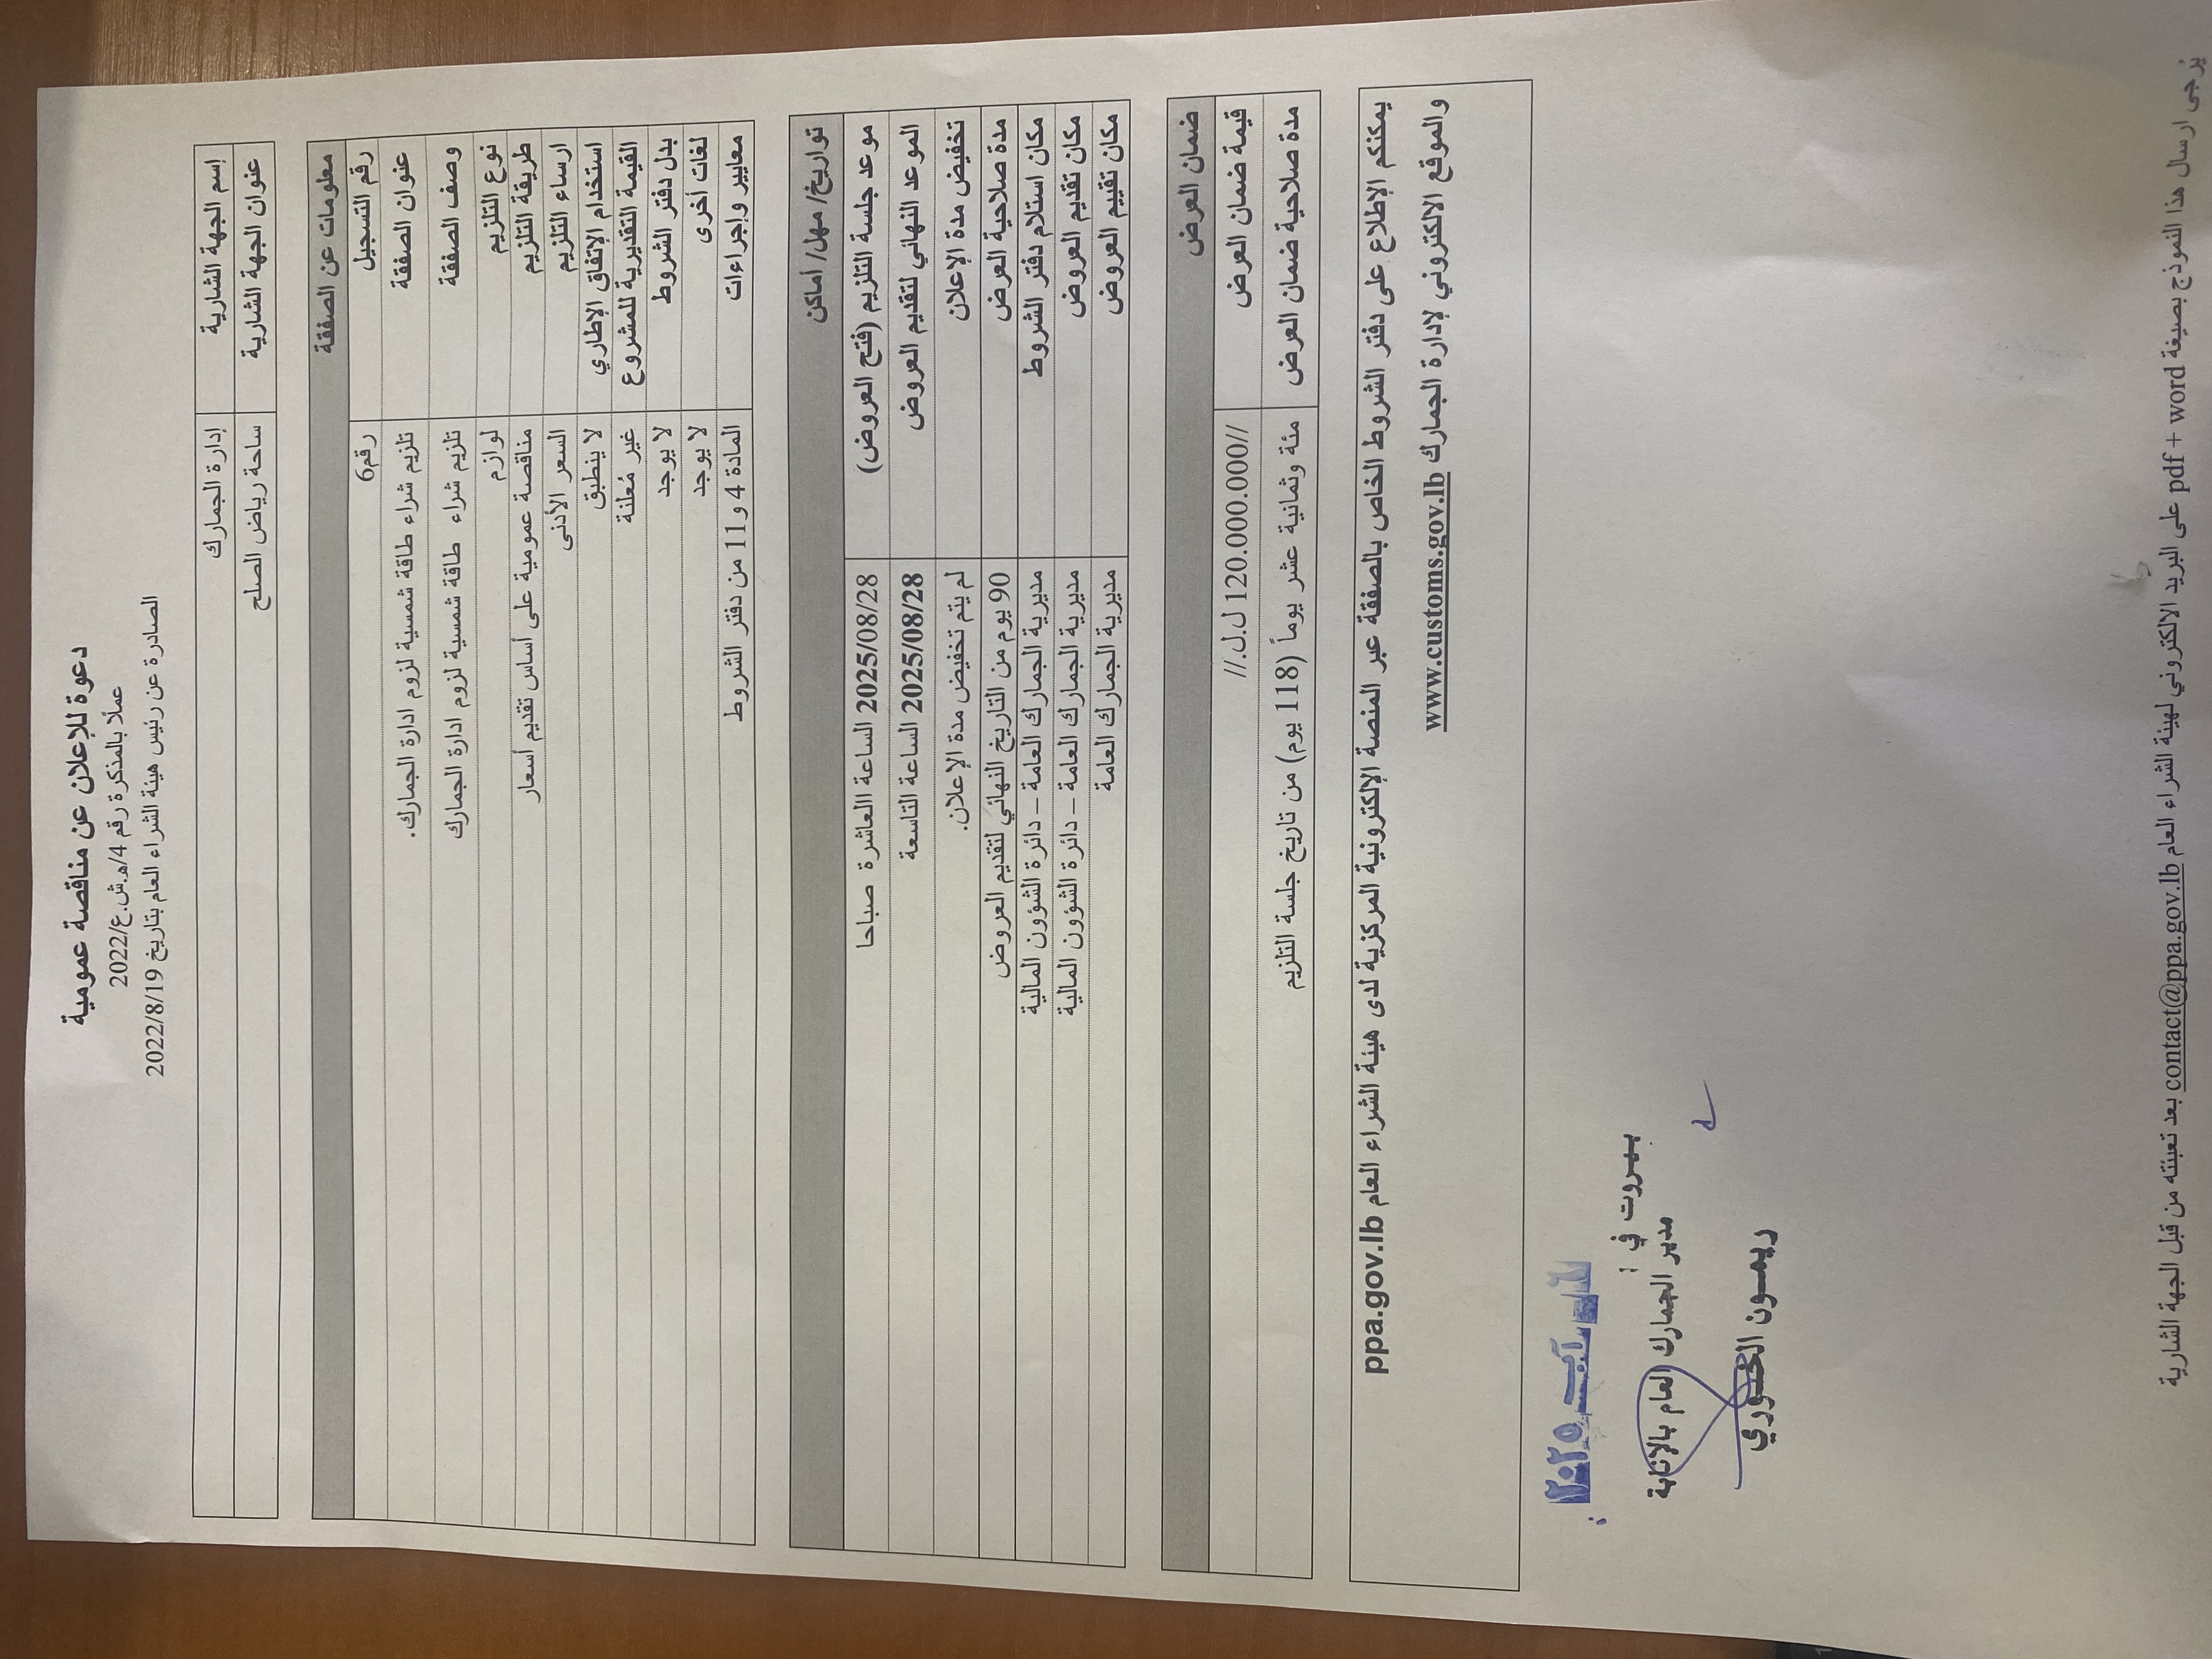 دعوة للإعلان عن مناقصة عمومية
عملاً بالمذكرة رقم 4/ه.ش.ع/2022
الصادرة عن رئيس هيئة الشراء العام بتاريخ 2022/8/19
إسم الجهة الشارية إدارة الجمارك
عنوان الجهة الشارية ساحة رياض الصلح
معلومات عن الصفقة
رقم التسجيل رقم6
عنوان الصفقة تلزيم شراء طاقة شمسية لزوم ادارة الجمارك.
وصف الصفقة تلزيم شراء طاقة شمسية لزوم ادارة الجمارك
نوع التلزيم لوازم
طريقة التلزيم مناقصة عمومية على أساس تقديم أسعار
ارساء التلزيم السعر الأدنى
استخدام الإتفاق الإطاري لا ينطبق
القيمة التقديرية للمشروع غير مُعلنة
بدل دفتر الشروط لا يوجد
لغات أخرى لا يوجد
معايير وإجراءات المادة 4 و11 من دفتر الشروط
تواريخ/ مهل/ أماكن
موعد جلسة التلزيم (فتح العروض) 2025/08/28 الساعة االعاشرة صباحا
الموعد النهائي لتقديم العروض 2025/08/28 الساعة التاسعة
تخفيض مدة الإعلان لم يتم تخفيض مدة الإعلان.
مدة صلاحية العرض 90 يوم من التاريخ النهائي لتقديم العروض
مكان استلام دفتر الشروط مديرية الجمارك العامة – دائرة الشؤون المالية
مكان تقديم العروض مديرية الجمارك العامة – دائرة الشؤون المالية
مكان تقييم العروض مديرية الجمارك العامة
ضمان العرض
قيمة ضمان العرض //120.000.000 ل.ل.//
مدة صلاحية ضمان العرض مئة وثمانية عشر يوماً (118 يوم) من تاريخ جلسة التلزيم
يمكنكم الإطلاع على دفتر الشروط الخاص بالصفقة عبر المنصة الإلكترونية المركزية لدى هيئة الشراء العام ppa.gov.lb
والموقع الالكتروني لإدارة الجمارك www.customs.gov.lb
آب ٢٠٢٥
بيروت في :
مدير الجمارك العام بالإنابة
ريمون الخوري
يُرجى ارسال هذا النموذج بصيغة pdf + word على البريد الالكتروني لهيئة الشراء العام contact@ppa.gov.lb بعد تعبئته من قبل الجهة الشارية